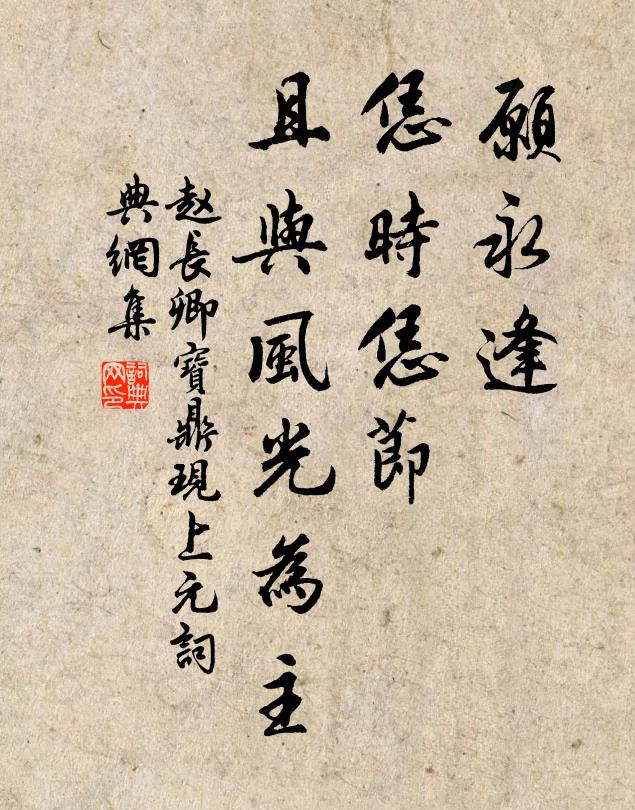 願永逢
恁時恁節
且與風光為主
赵長卿寶鼎現上元詞
典網集
詞典
网印